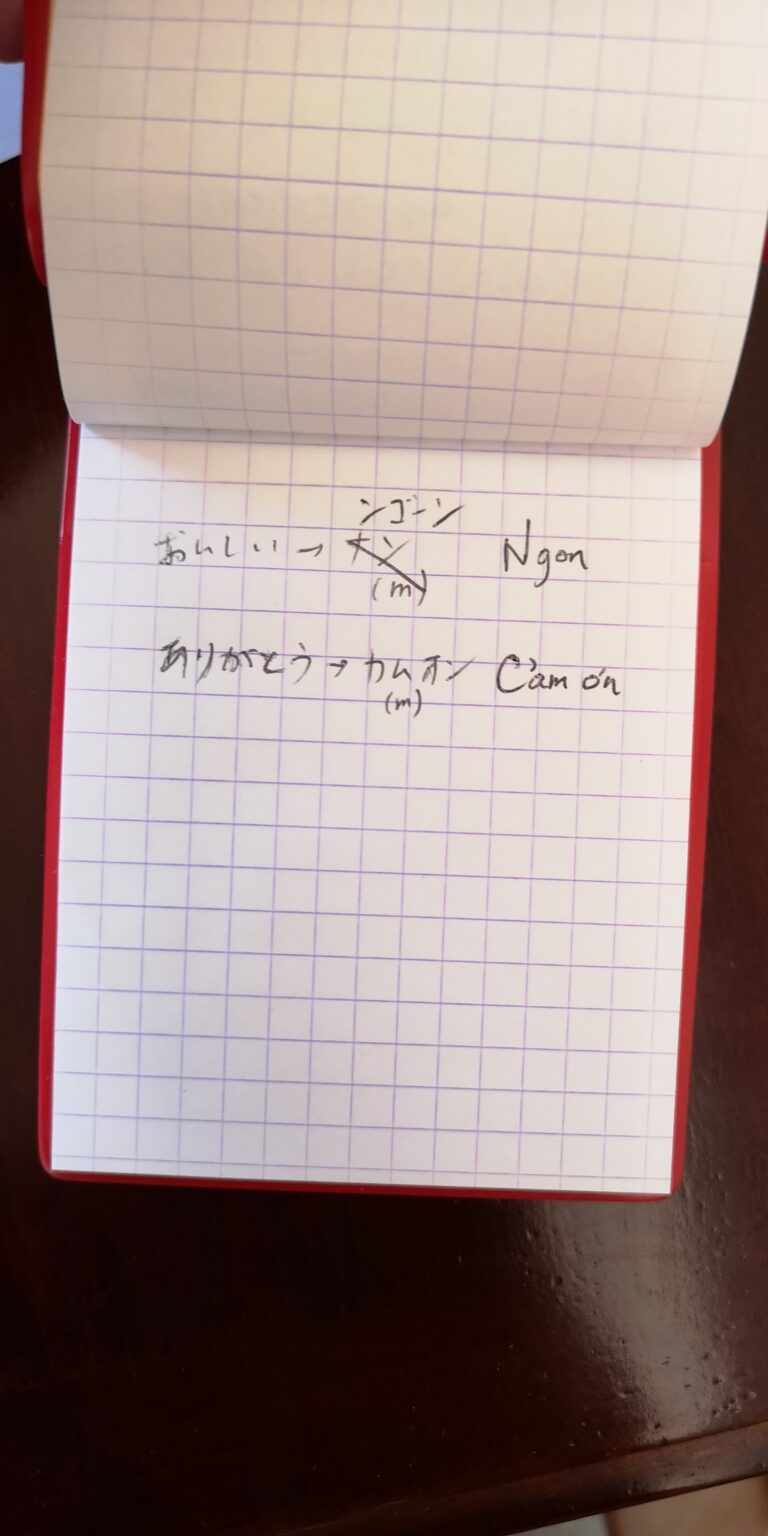 ンゴーン
おいしい → ナン Ngon
(m)
ありがとう → カムオン Cảm ơn
(m)